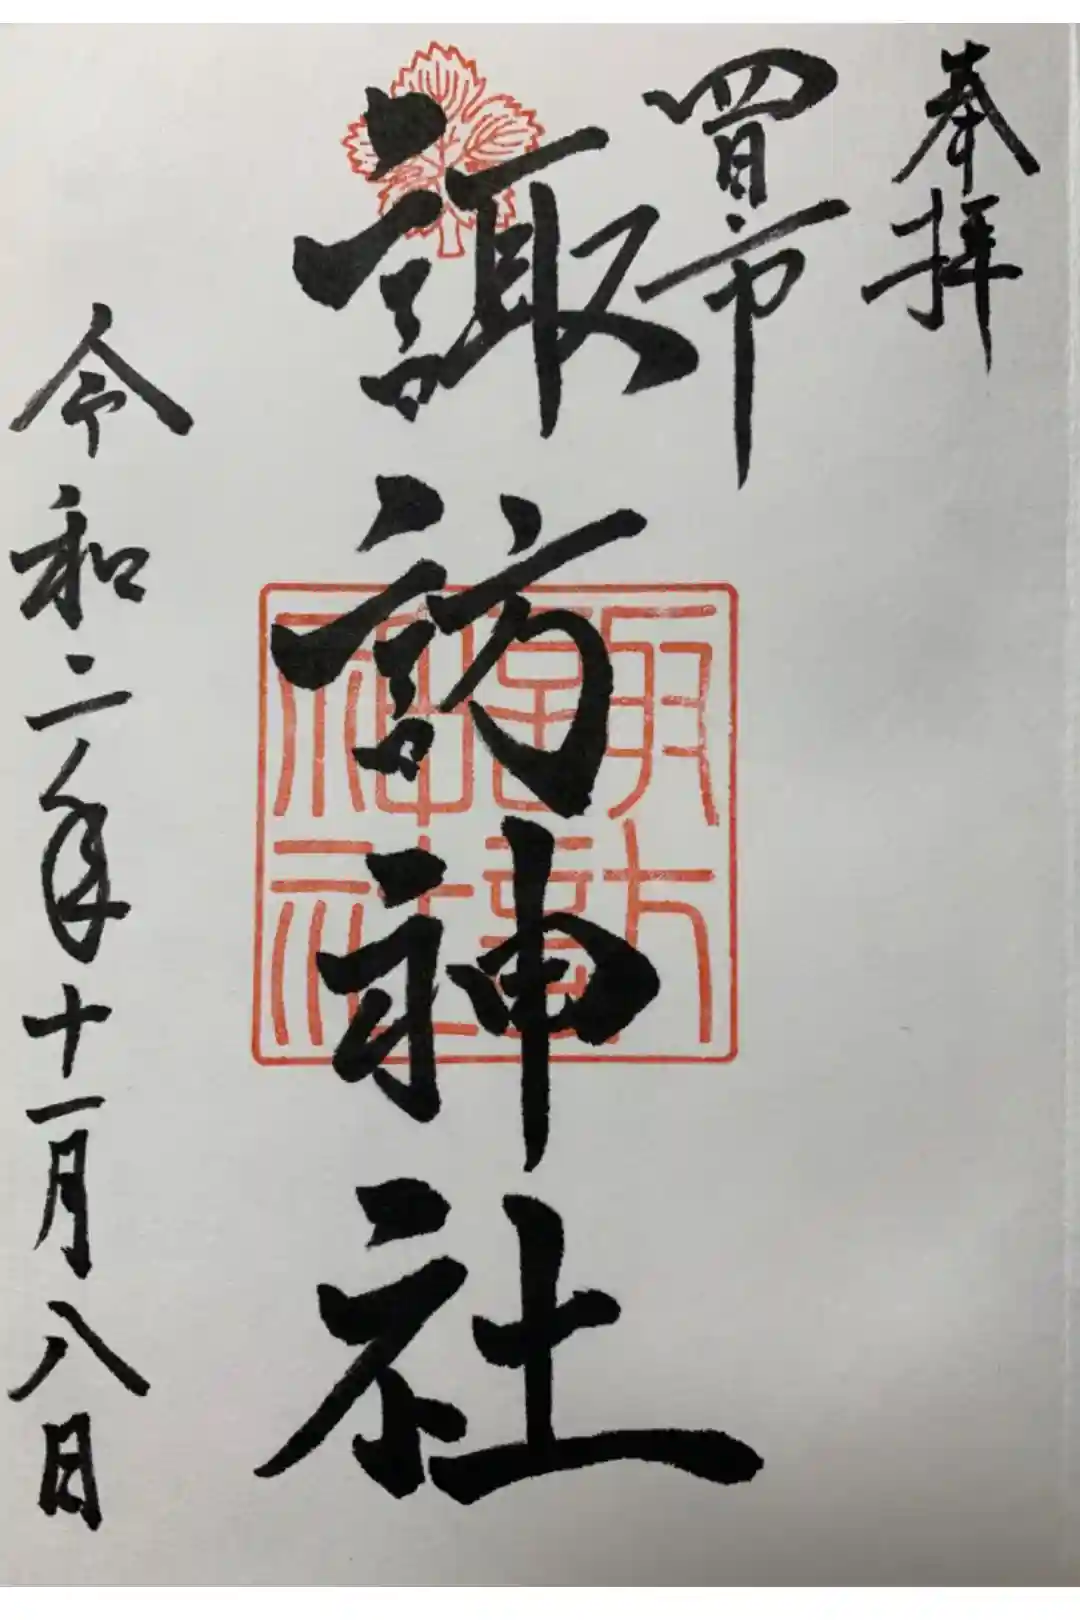 奉拝
四日市
諏訪神社
諏訪神社
令和二年十一月八日